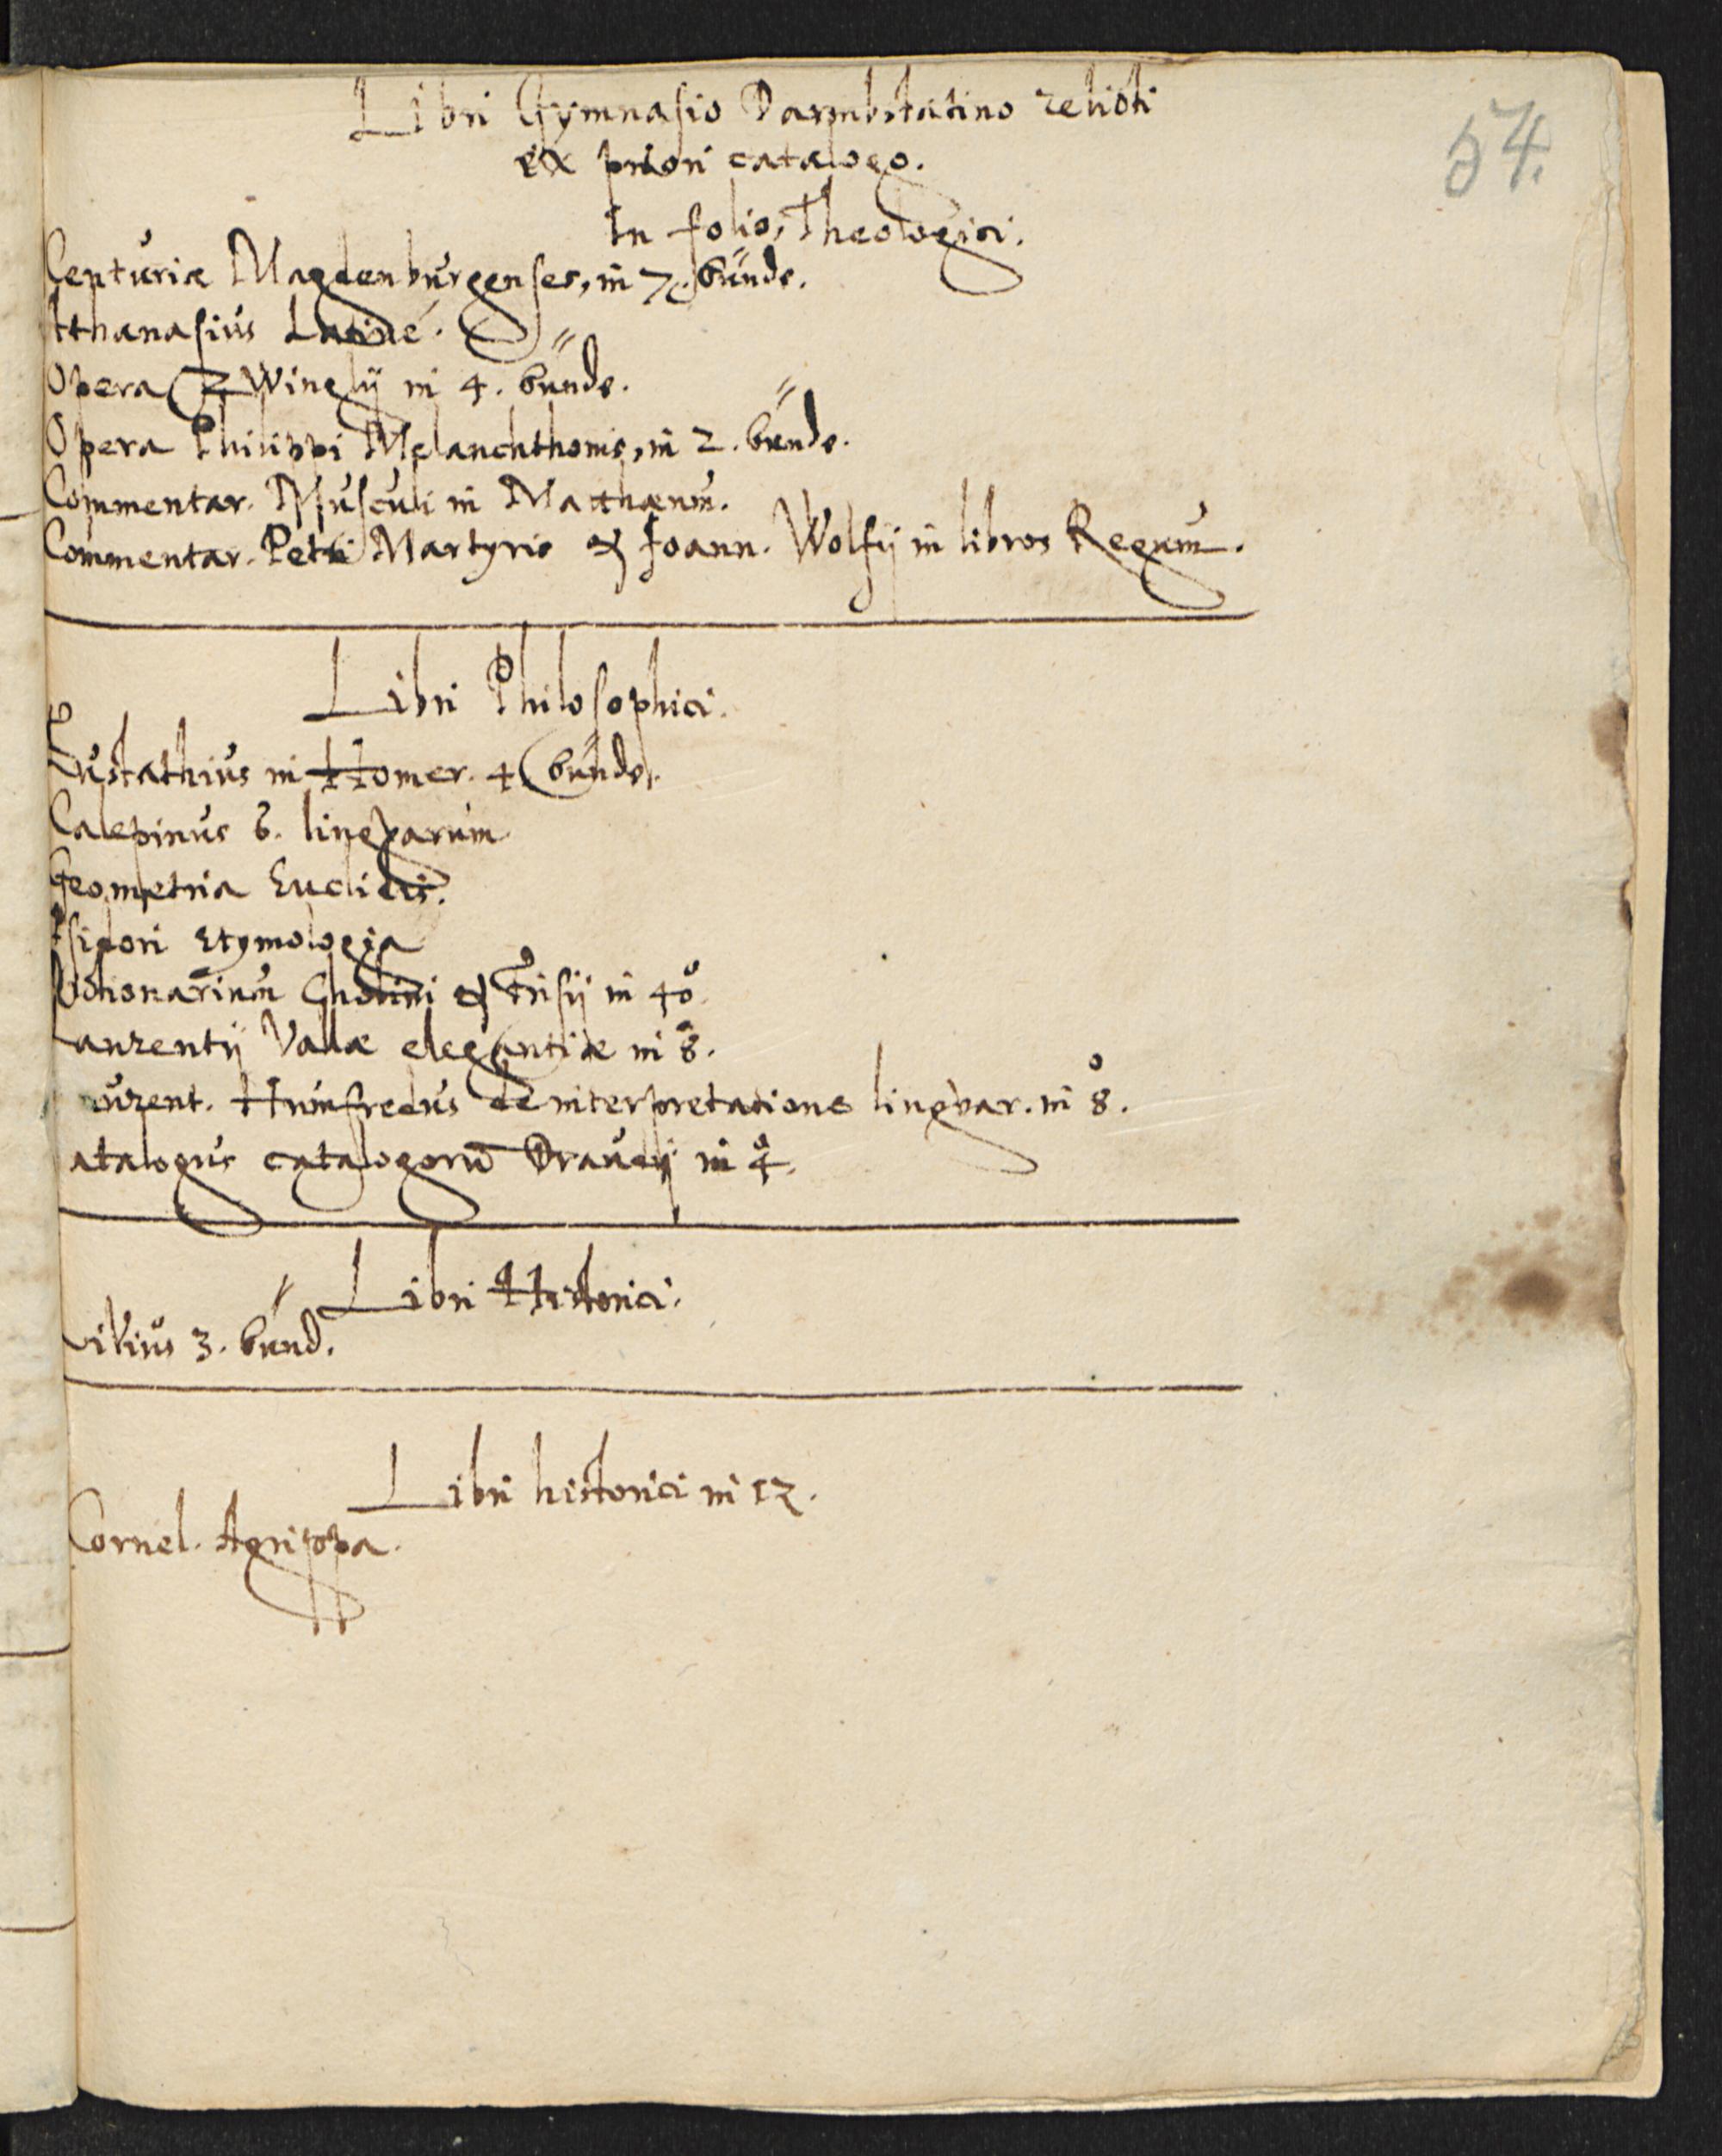 54.
Libri Gymnasio Darmbstatino relicti
ex priori catalogo.
In folio, Theologici.
Centuriæ Magdenburgenses, in 7. bünde.
Athanasius Latinè.
Opera Zwinglij in 4. bünde.
Opera Philippi Melanchthonis, in 2. bünde.
Commentar. Musculi in Matthæum.
Commentar. Petri Martyris & Joann. Wolfij in libros Regum.
Libri Philosophici.
Eustathius in Homer. 4 bünde.
Calepinus 6. lingvarum
Geometria Euclidis.
Isidori Etymologia
Dictionarium Cholini & Frisij in 4o
Laurentij Vallæ elegantiæ in 8.
Laurent. Humfredus de interpretatione lingvar. in 8o.
Catalogus catalogorũ Draudij in 4o.
Libri Historici.
Livius 3. bünd.
Libri historici in 12.
Cornel. Agrippa.